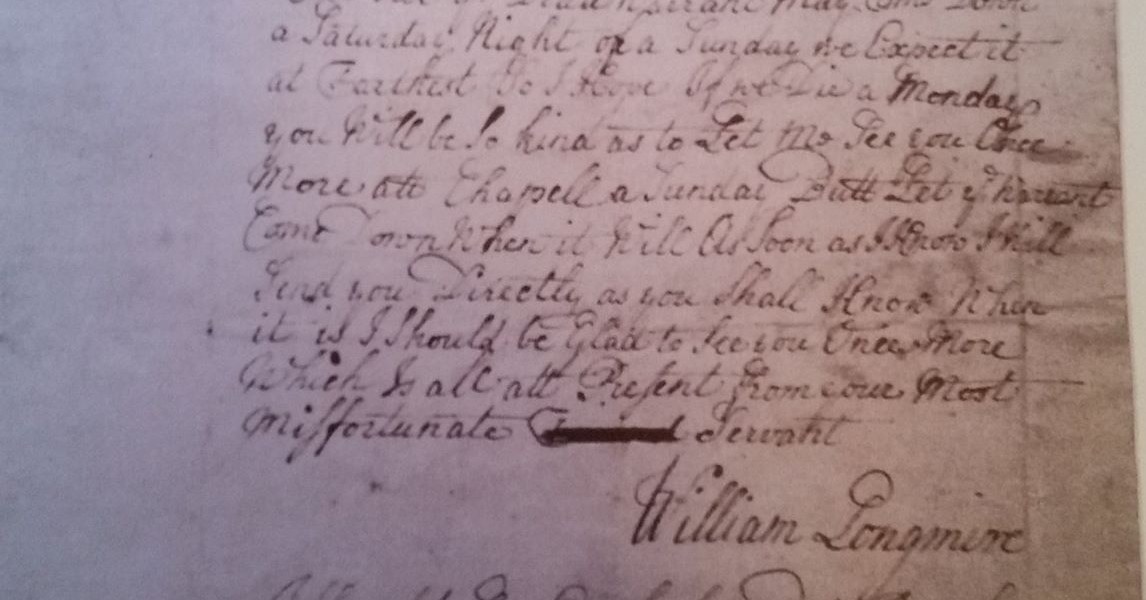 Dead Warrant May Come Down
a Saturday Night or a Sunday we Expect it
at Farthest So I Hope If we Die a Monday
you Will be So kind as to Let Me See you Once
More att Chapell a Sunday Butt Let ye Warrant
Come Down When it Will As Soon as I Know I Will
Send you Directly as you Shall Know When
it is I Should be Glad to See you Once More
Which Is all att Present From your Most
Missfortunate Servant
William Longmire